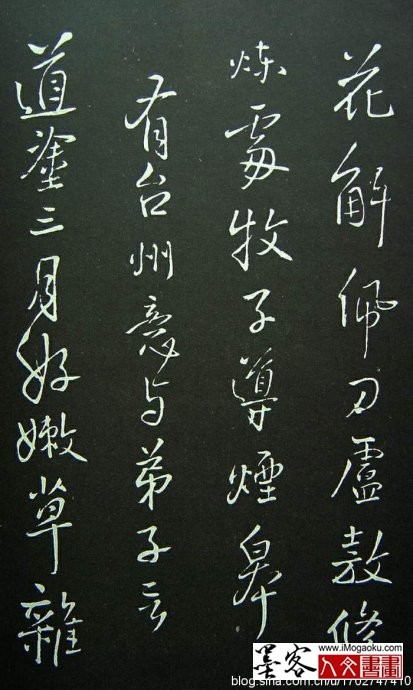 花解佩刀盧敖修
煉處牧子導煙皋
有台州意与弟子言
道塗三月好嫩草雜
墨客
www.iMogaoku.com
blog.sina.com.cn/u/1702747410